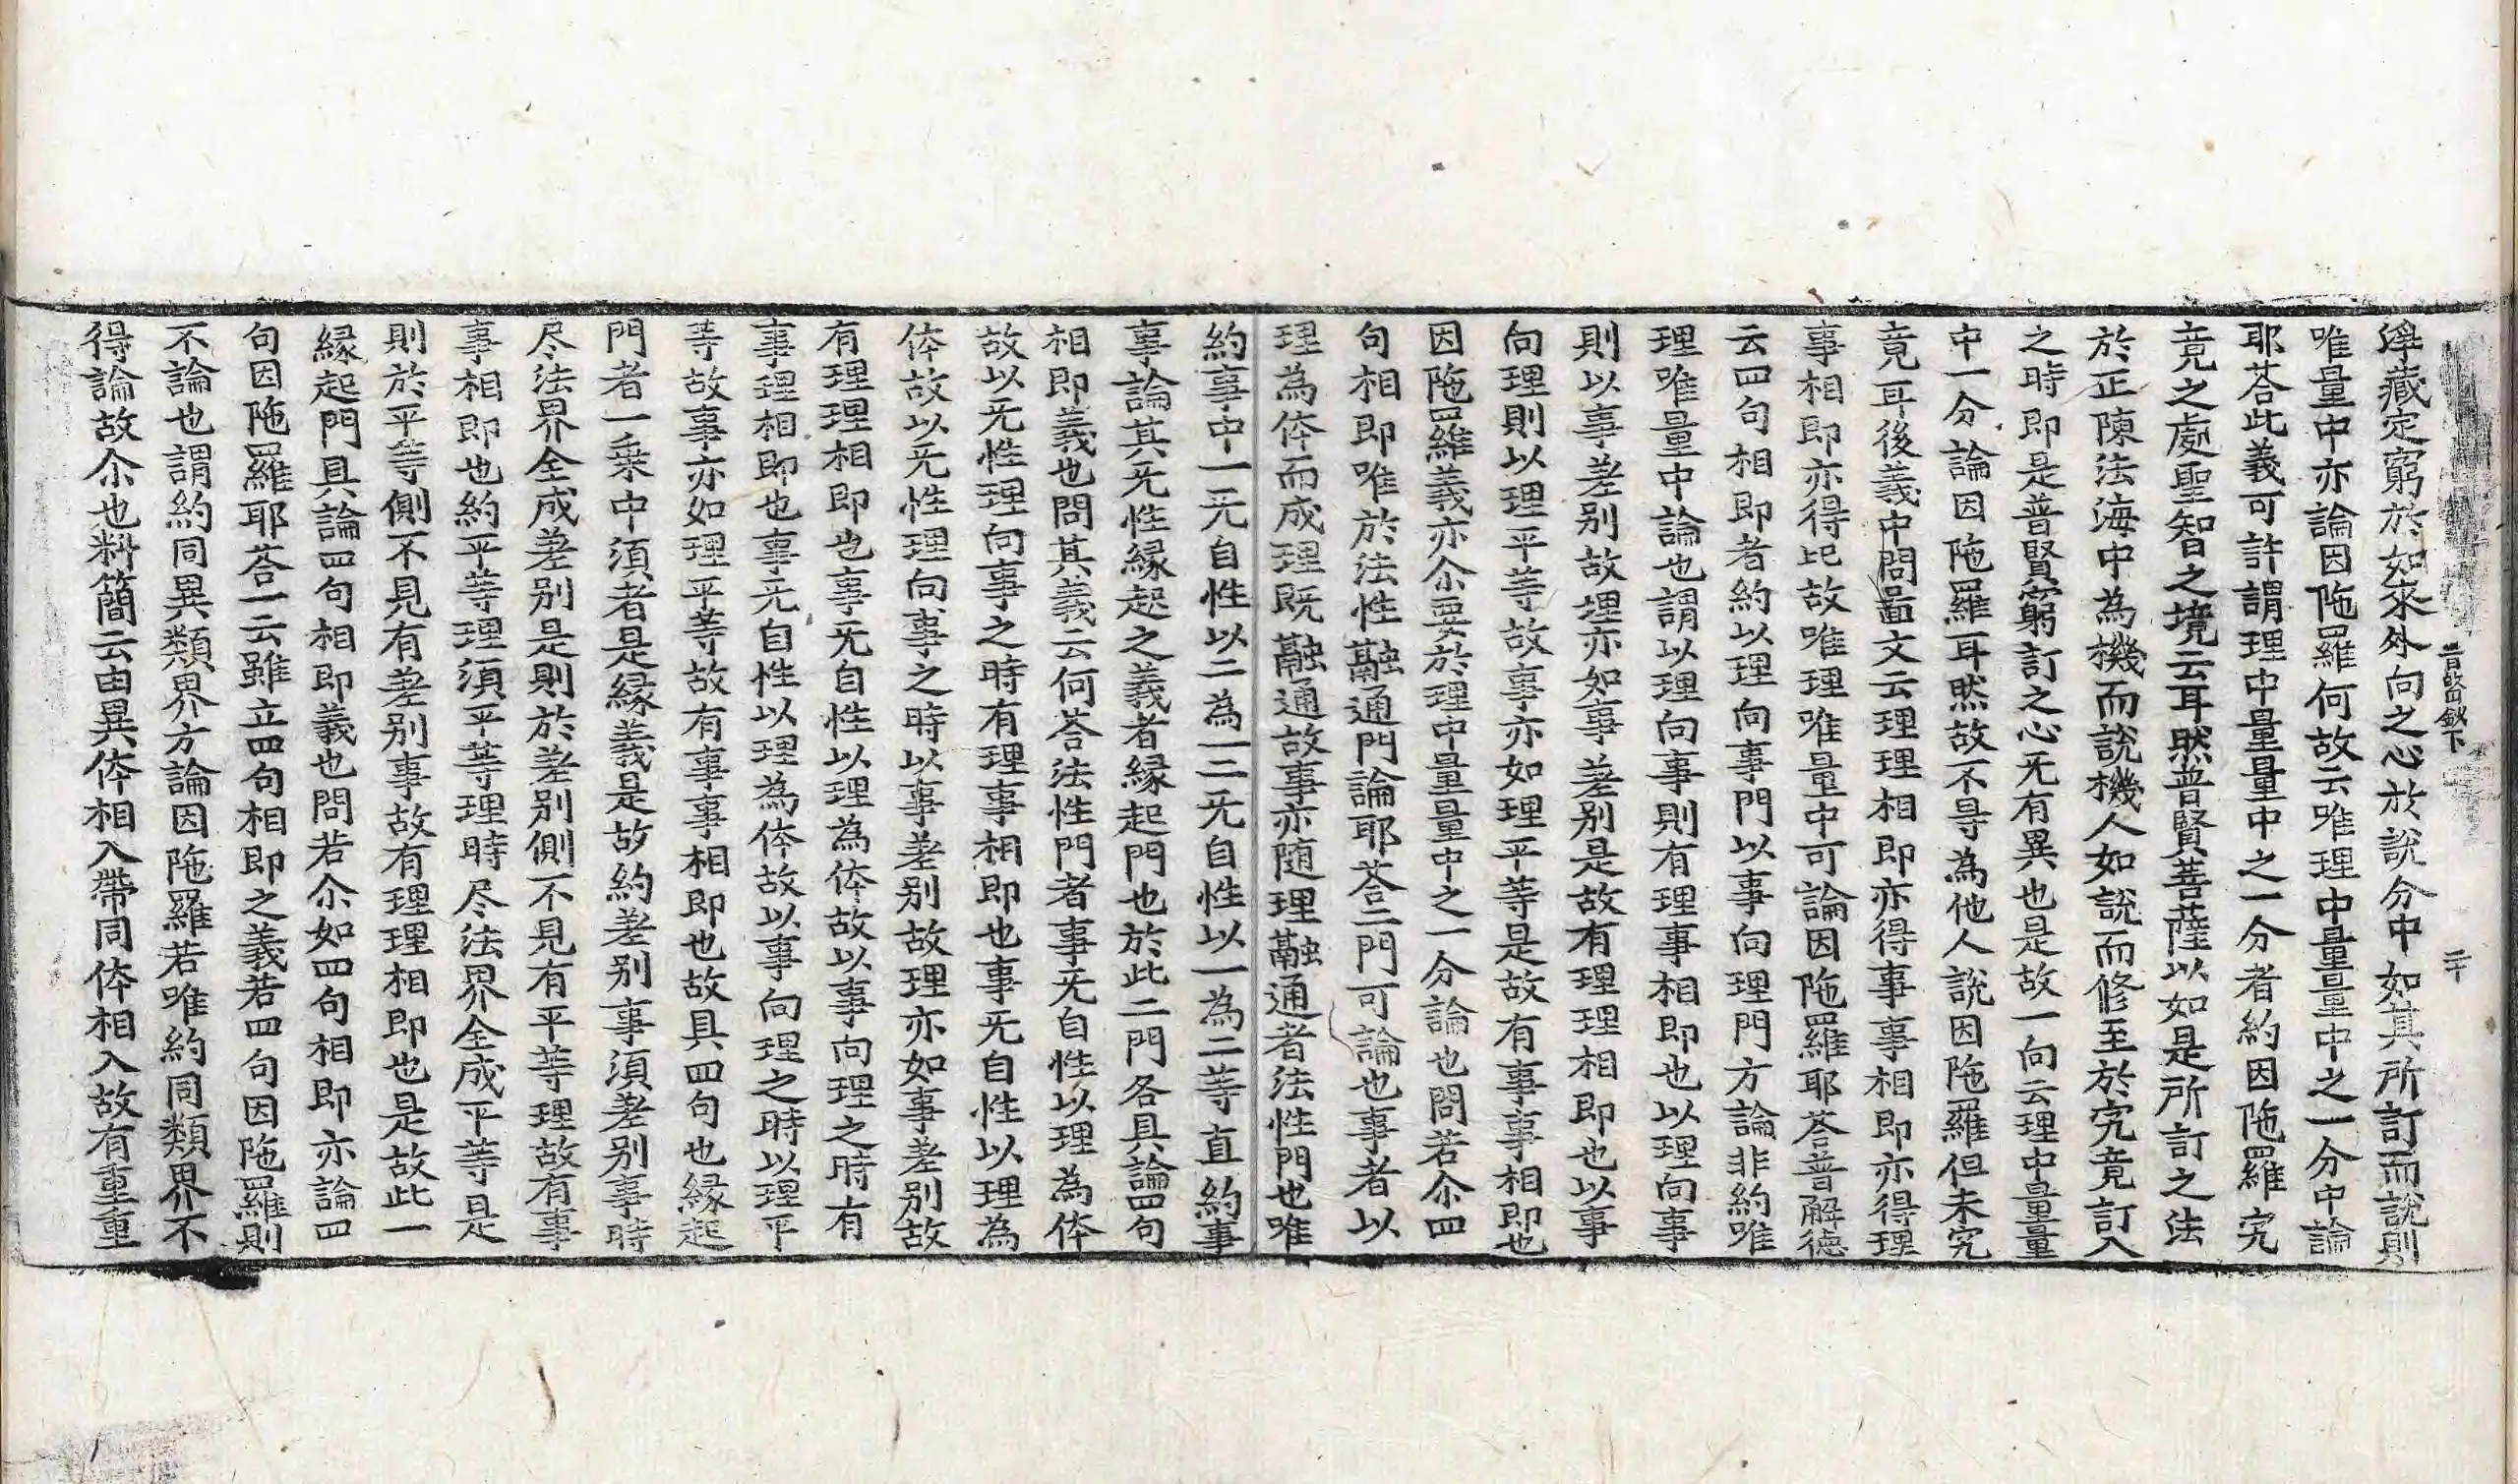 淨藏定窮於如來外向之心於說分中如其所訂而說則
唯量中亦論因陁羅何故云唯理中量量中之一分中論
耶荅此義可許謂理中量量中之一分者約因陁羅究
竟之處聖智之境云耳然普賢菩薩以如是所訂之法
於正陳法海中為機而說機人如說而修至於究竟訂入
之時即是普賢窮訂之心旡有異也是故一向云理中量量
中一分論因陁羅耳然故不㝵為他人說因陁羅但未究
竟耳後義中問啚文云理理相即亦得事事相即亦得理
事相即亦得㐵故唯理唯量中可論因陁羅耶荅普解德
云四句相即者約以理向事門以事向理門方論非約唯
理唯量中論也謂以理向事則有理事相即也以理向事
則以事差别故理亦如事差别是故有理理相即也以事
向理則以理平等故事亦如理平等是故有事事相即也
因陁羅義亦尒要於理中量量中之一分論也問若尒四
句相即唯於法性融通門論耶荅二門可論也事者以
理為体而成理既融通故事亦随理融通者法性門也唯
約事中一旡自性以二為一二旡自性以一為二等直約事
事論其旡性緣起之義者緣起門也於此二門各具論四句
相即義也問其義云何荅法性門者事旡自性以理為体
故以旡性理向事之時有理事相即也事旡自性以理為
体故以旡性理向事之時以事差别故理亦如事差别故
有理理相即也事旡自性以理為体故以事向理之時有
事理相即也事旡自性以理為体故以事向理之時以理平
等故事亦如理平等故有事事相即也故具四句也緣起
門者一乗中湏者是緣義是故約差别事湏差别事時
尽法界全成差别是則於差别側不見有平等理故有事
事相即也約平等理湏平等理時尽法界全成平等是
則於平等側不見有差别事故有理理相即也是故此一
緣起門具論四句相即義也問若尒如四句相即亦論四
句因陁羅耶荅一云雖立四句相即之義若四句因陁羅則
不論也謂約同異類界方論因陁羅若唯約同類界不
得論故尒也料簡云由異体相入帶同体相入故有重重